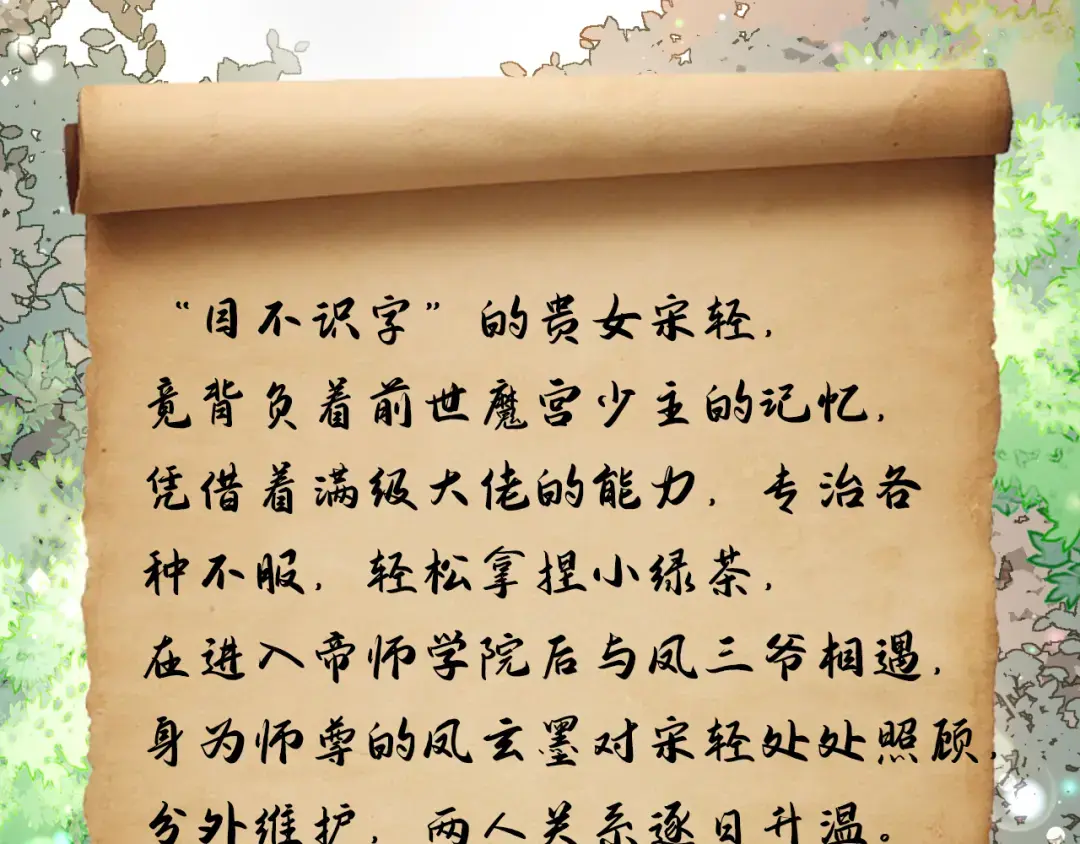 “目不识字”的贵女宋轻，
竟背负着前世魔宫少主的记忆，
凭借着满级大佬的能力，专治各
种不服，轻松拿捏小绿茶，
在进入帝师学院后与凤三爷相遇，
身为师尊的凤玄墨对宋轻处处照顾，
分外维护，两人关系逐日升温。